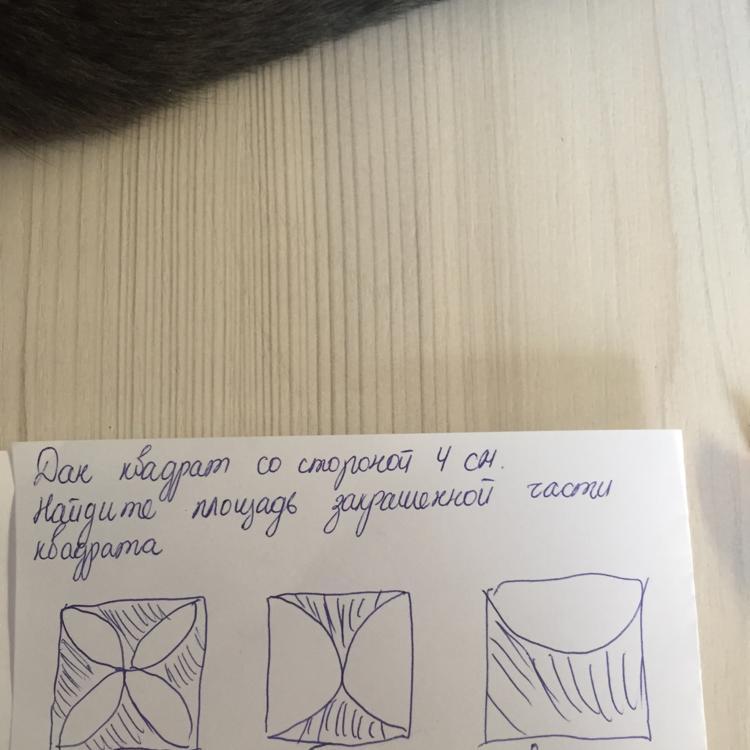 Дан квадрат со стороной 4 см.
Найдите площадь закрашенной части
квадрата